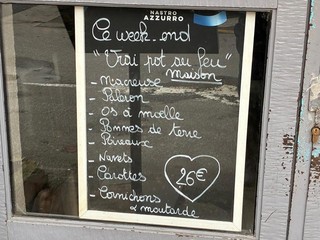 NASTRO
AZZURRO
Ce week-end
"Vrai pot au feu"
maison
- Macreuse
- Paleron
- Os à moelle
- Pommes de terre
- Poireaux
- Navets
- Carottes
- Cornichons
& moutarde
26€